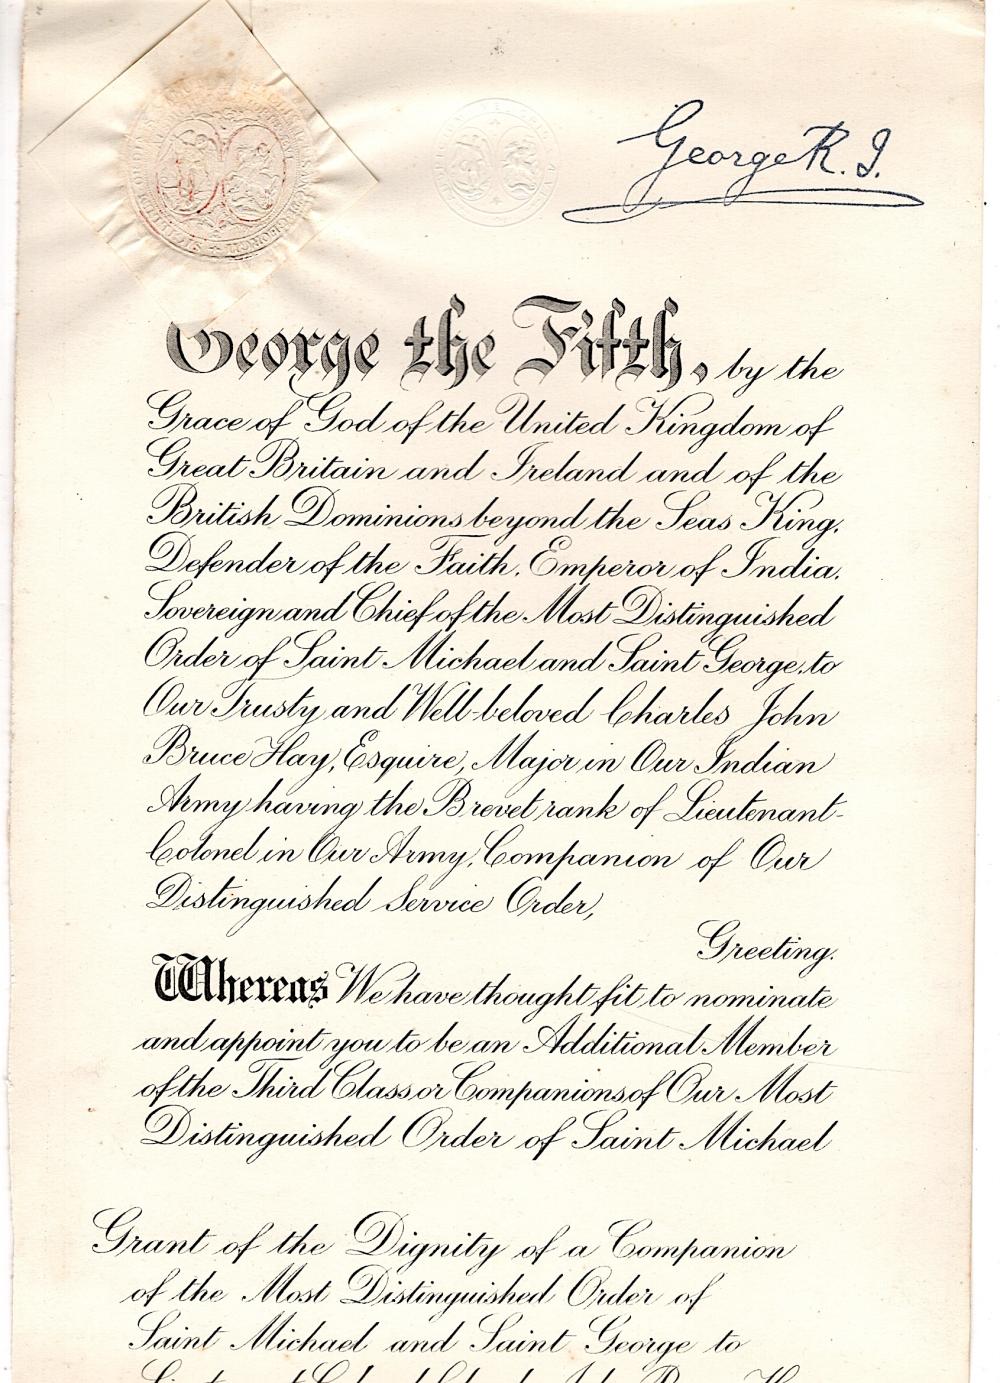 George R. I.
George the Fifth, by the
Grace of God of the United Kingdom of
Great Britain and Ireland and of the
British Dominions beyond the Seas King,
Defender of the Faith, Emperor of India,
Sovereign and Chief of the Most Distinguished
Order of Saint Michael and Saint George, to
Our Trusty and Well-beloved Charles John
Bruce Hay, Esquire, Major in Our Indian
Army having the Brevet rank of Lieutenant-
Colonel in Our Army, Companion of Our
Distinguished Service Order,
Greeting.
Whereas We have thought fit to nominate
and appoint you to be an Additional Member
of the Third Class or Companions of Our Most
Distinguished Order of Saint Michael
Grant of the Dignity of a Companion
of the Most Distinguished Order of
Saint Michael and Saint George to